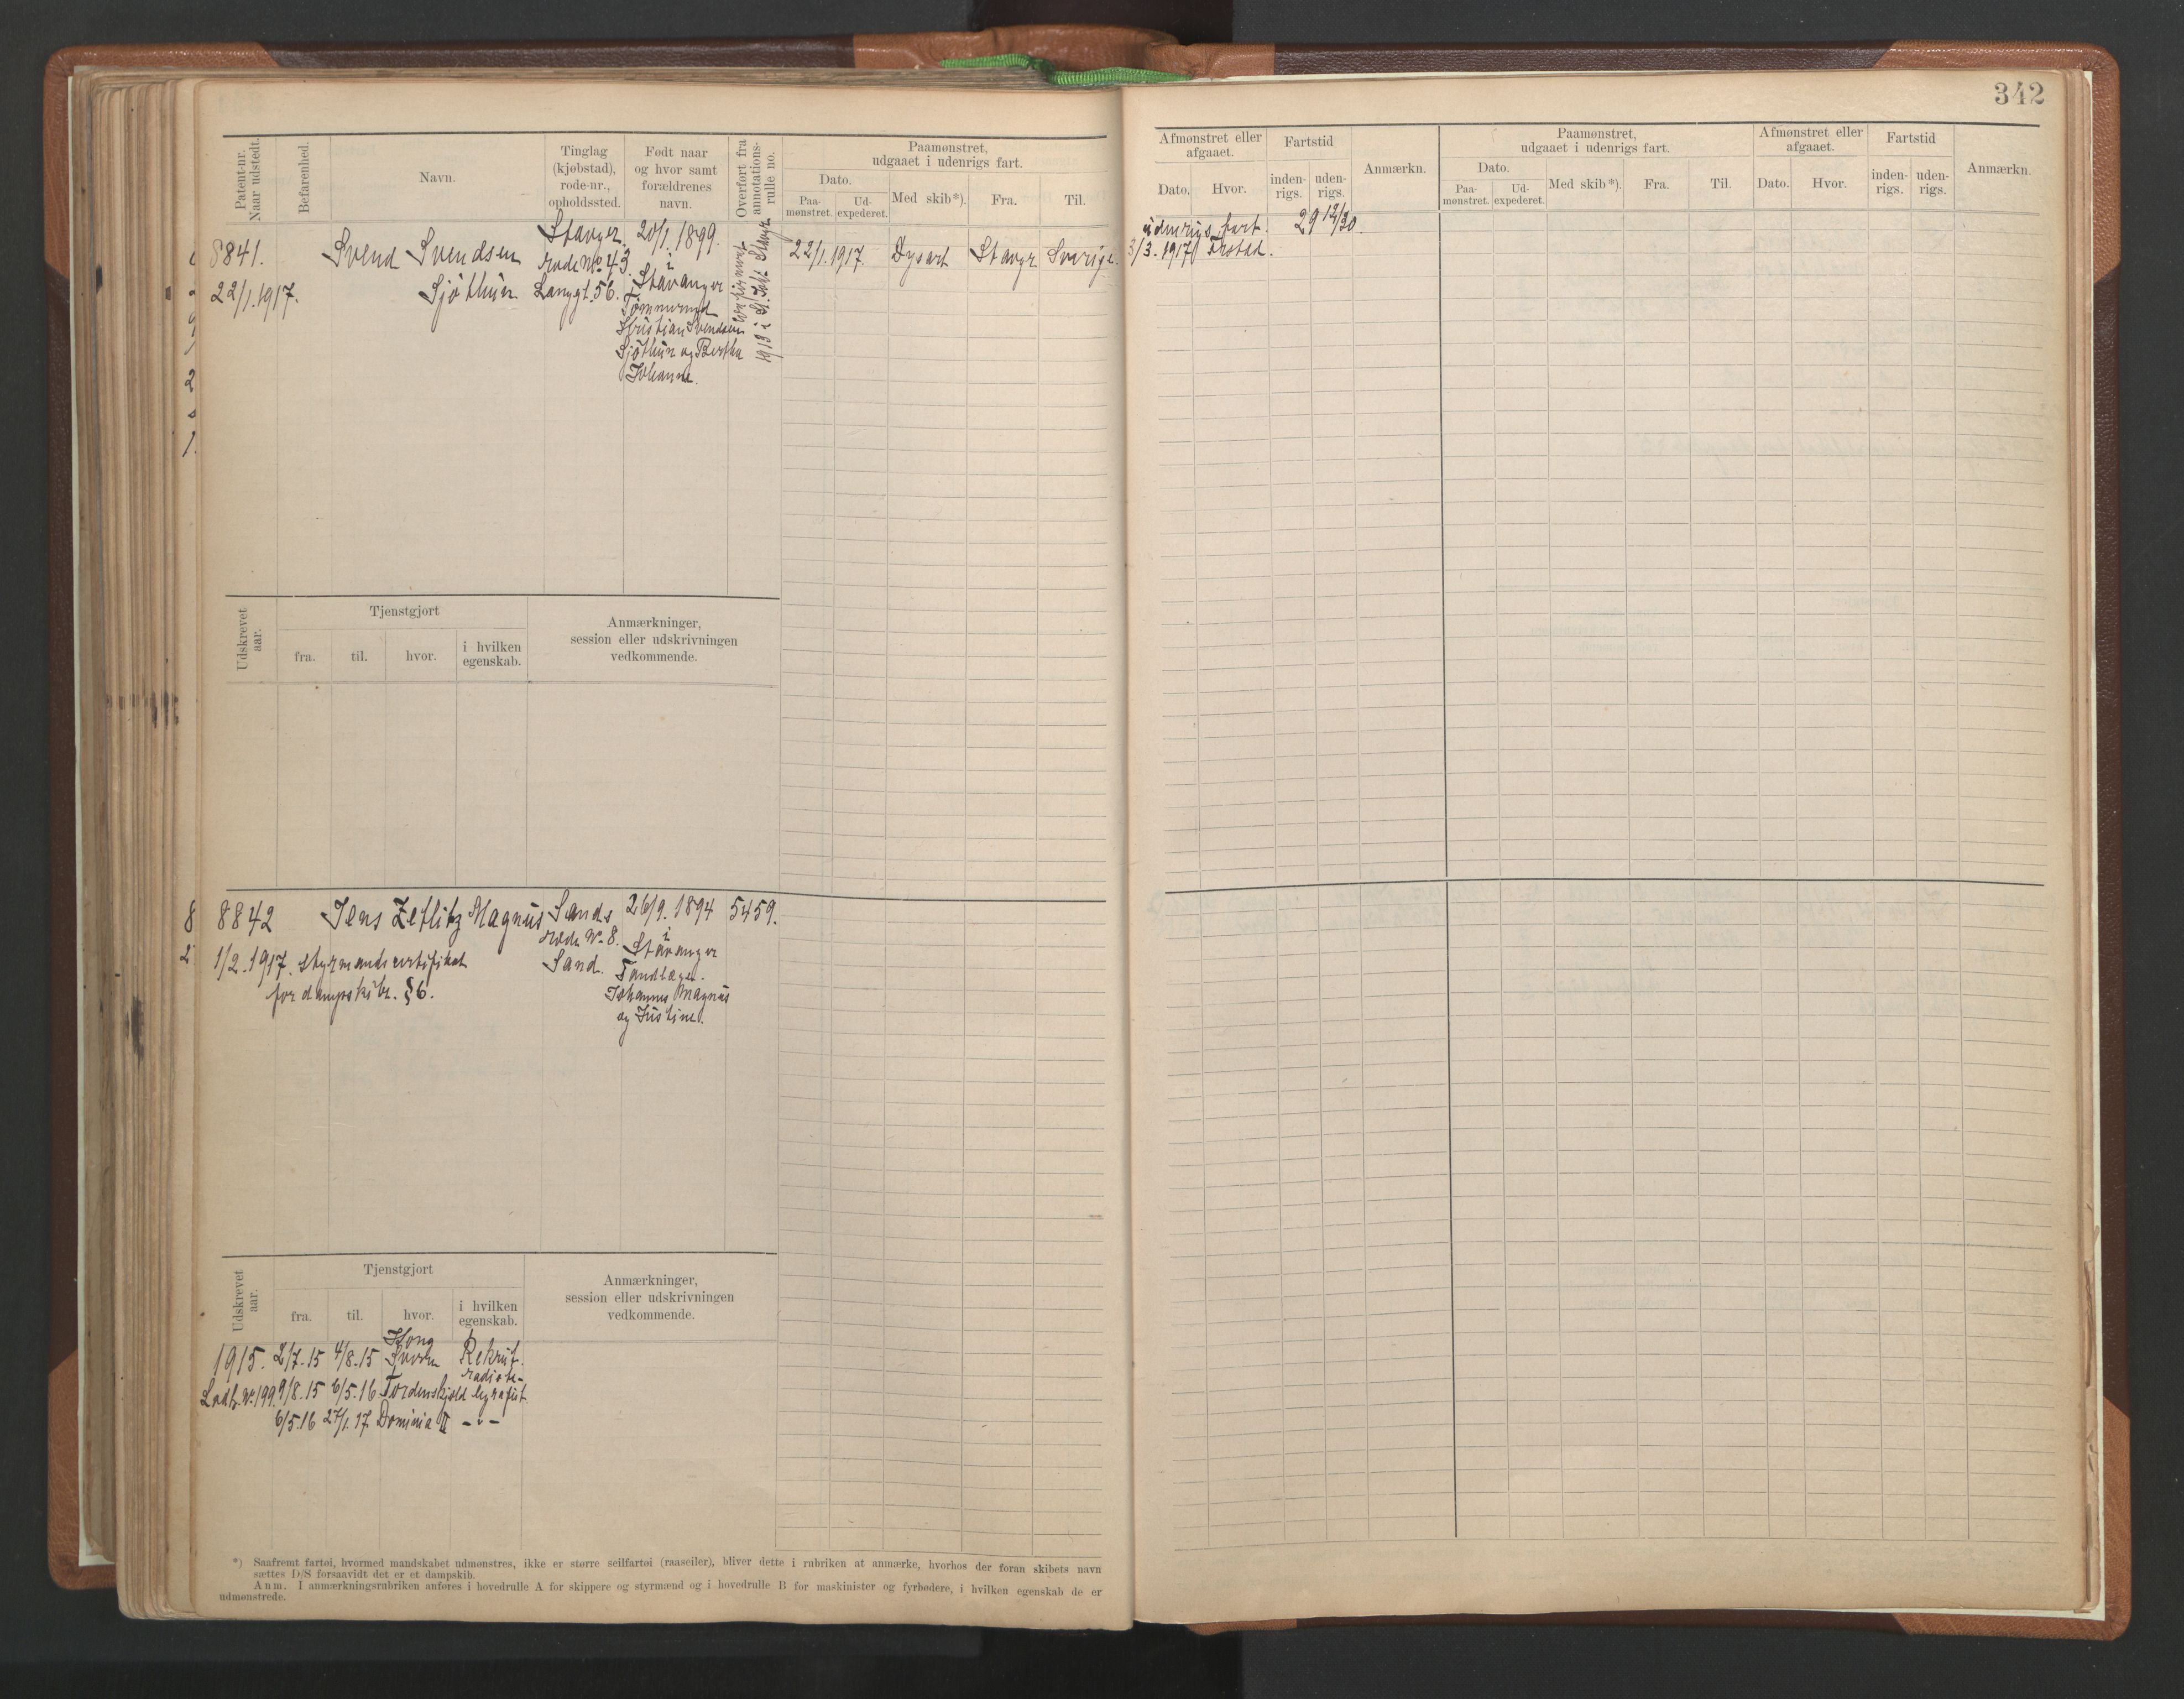 342
Patent-nr. Naar udstedt.
Befarenhed.
Navn.
Tinglag (kjøbstad), rode-nr., opholdssted.
Født naar og hvor samt forældrenes navn.
Overført fra annotations-rulle no.
Paamønstret, udgaaet i udenrigs fart.
Dato.
Paa-mønstret.
Ud-expederet.
Med skib*).
Fra.
Til.
Afmønstret eller afgaaet.
Dato.
Hvor.
Fartstid
inden-rigs.
uden-rigs.
Anmærkn.
Paamønstret, udgaaet i udenrigs fart.
Dato.
Paa-mønstret.
Ud-expederet.
Med skib*).
Fra.
Til.
Afmønstret eller afgaaet.
Dato.
Hvor.
Fartstid
inden-rigs.
uden-rigs.
Anmærkn.
8841.
22/1.1917.
Svend Svendsen
Sjöthun
Stavger.
rode No 43.
Langgt. 56.
20/1. 1899.
i
Stavanger
Tømmermd
Kristian Svendsen
Sjöthun og Bertha
Johanne.
1913 i St. Stavgr
22/1.1917. Dysart Stavgr Sverige.
udenrigs fart. 29 12/30.
3/3.1917
Udskrevet aar.
Tjenstgjort
fra.
til.
hvor.
i hvilken egenskab.
Anmærkninger,
session eller udskrivningen
vedkommende.
8842
1/2.1917.
Jens Zetlitz Magnus
styrmandscertifikat
for dampskibe. §6.
Sands
rode No 8.
Sand.
26/9. 1894
i
Stavanger
Tandlæge
Johannes Magnus
og Justine.
5459.
Udskrevet aar.
Tjenstgjort
fra.
til.
hvor.
i hvilken egenskab.
Anmærkninger,
session eller udskrivningen
vedkommende.
1915. 2/7.15 4/8.15 Kong Sverre Rekrut.
Ladb. No 199 9/8.15 6/5.16 Tordenskjold radiote-legrafist
6/5.16 27/1.17. Dominia II -"-
*) Saafremt fartøi, hvormed mandskabet udmønstres, ikke er større seilfartøi (raaseiler), bliver dette i rubriken at anmærke, hvorhos der foran skibets navn
sættes D/S forsaavidt det er et dampskib.
Anm. I anmærkningsrubriken anføres i hovedrulle A for skippere og styrmænd og i hovedrulle B for maskinister og fyrbødere, i hvilken egenskab de er
udmønstrede.